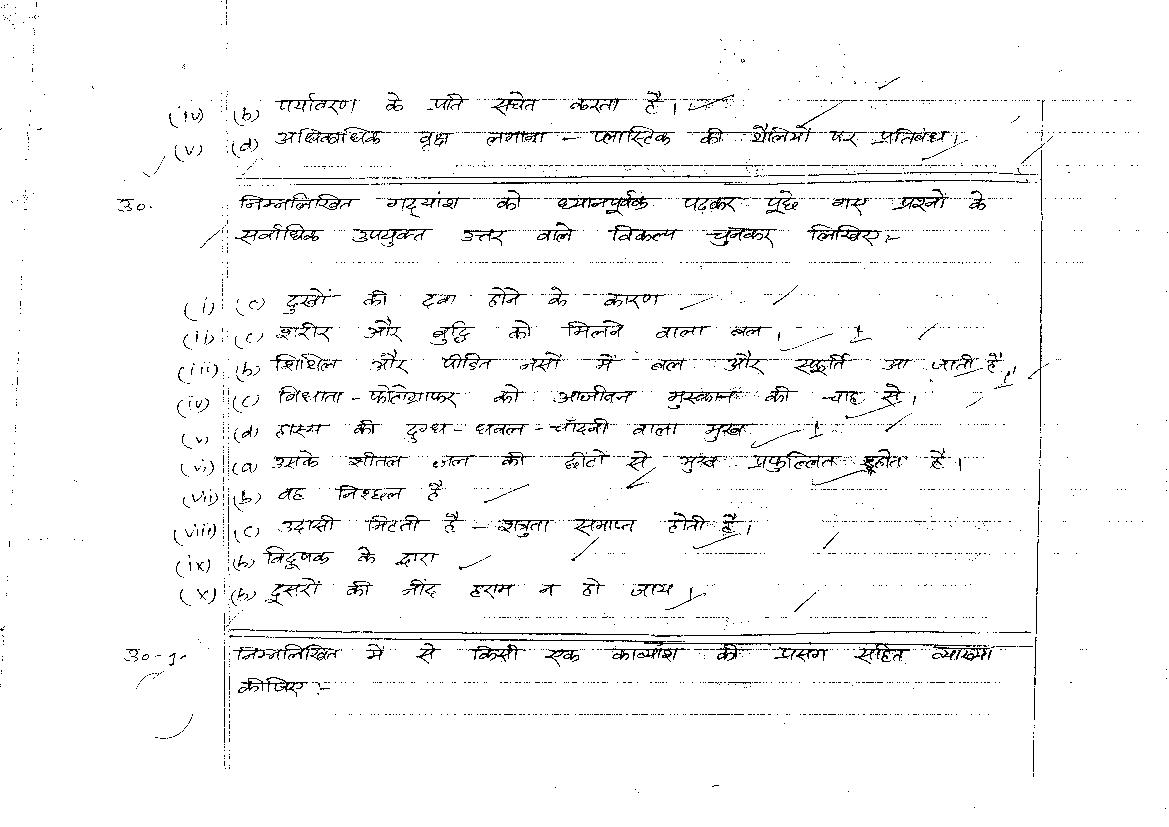 (iv) (b) पर्यावरण के प्रति सचेत करता है।
(v) (d) अधिकाधिक वृक्ष लगाना - प्लास्टिक की थैलियों पर प्रतिबंध।
उ०. निम्नलिखित गद्यांश को ध्यानपूर्वक पढ़कर पूछे गए प्रश्नों के
सर्वाधिक उपयुक्त उत्तर वाले विकल्प चुनकर लिखिए:-
(i) (c) दुखों की दवा होने के कारण
(ii) (c) शरीर और बुद्धि को मिलने वाला बल।
(iii) (b) शिथिल और पीड़ित नसों में बल और स्फूर्ति आ जाती है।
(iv) (c) विधाता - फोटोग्राफर को आजीवन मुस्कान की चाह से।
(v) (d) हास्य की दुग्ध - धवल - चाँदनी वाला मुख
(vi) (a) उसके शीतल जल की छींटो से मुख प्रफुल्लित होता है।
(vii) (b) वह निश्छल है
(viii) (c) उदासी मिटती है - शत्रुता समाप्त होती है।
(ix) (b) विदूषक के द्वारा
(x) (b) दूसरों की नींद हराम न हो जाय।
उ०-१० निम्नलिखित में से किसी एक काव्यांश की प्रसंग सहित व्याख्या
कीजिए :-